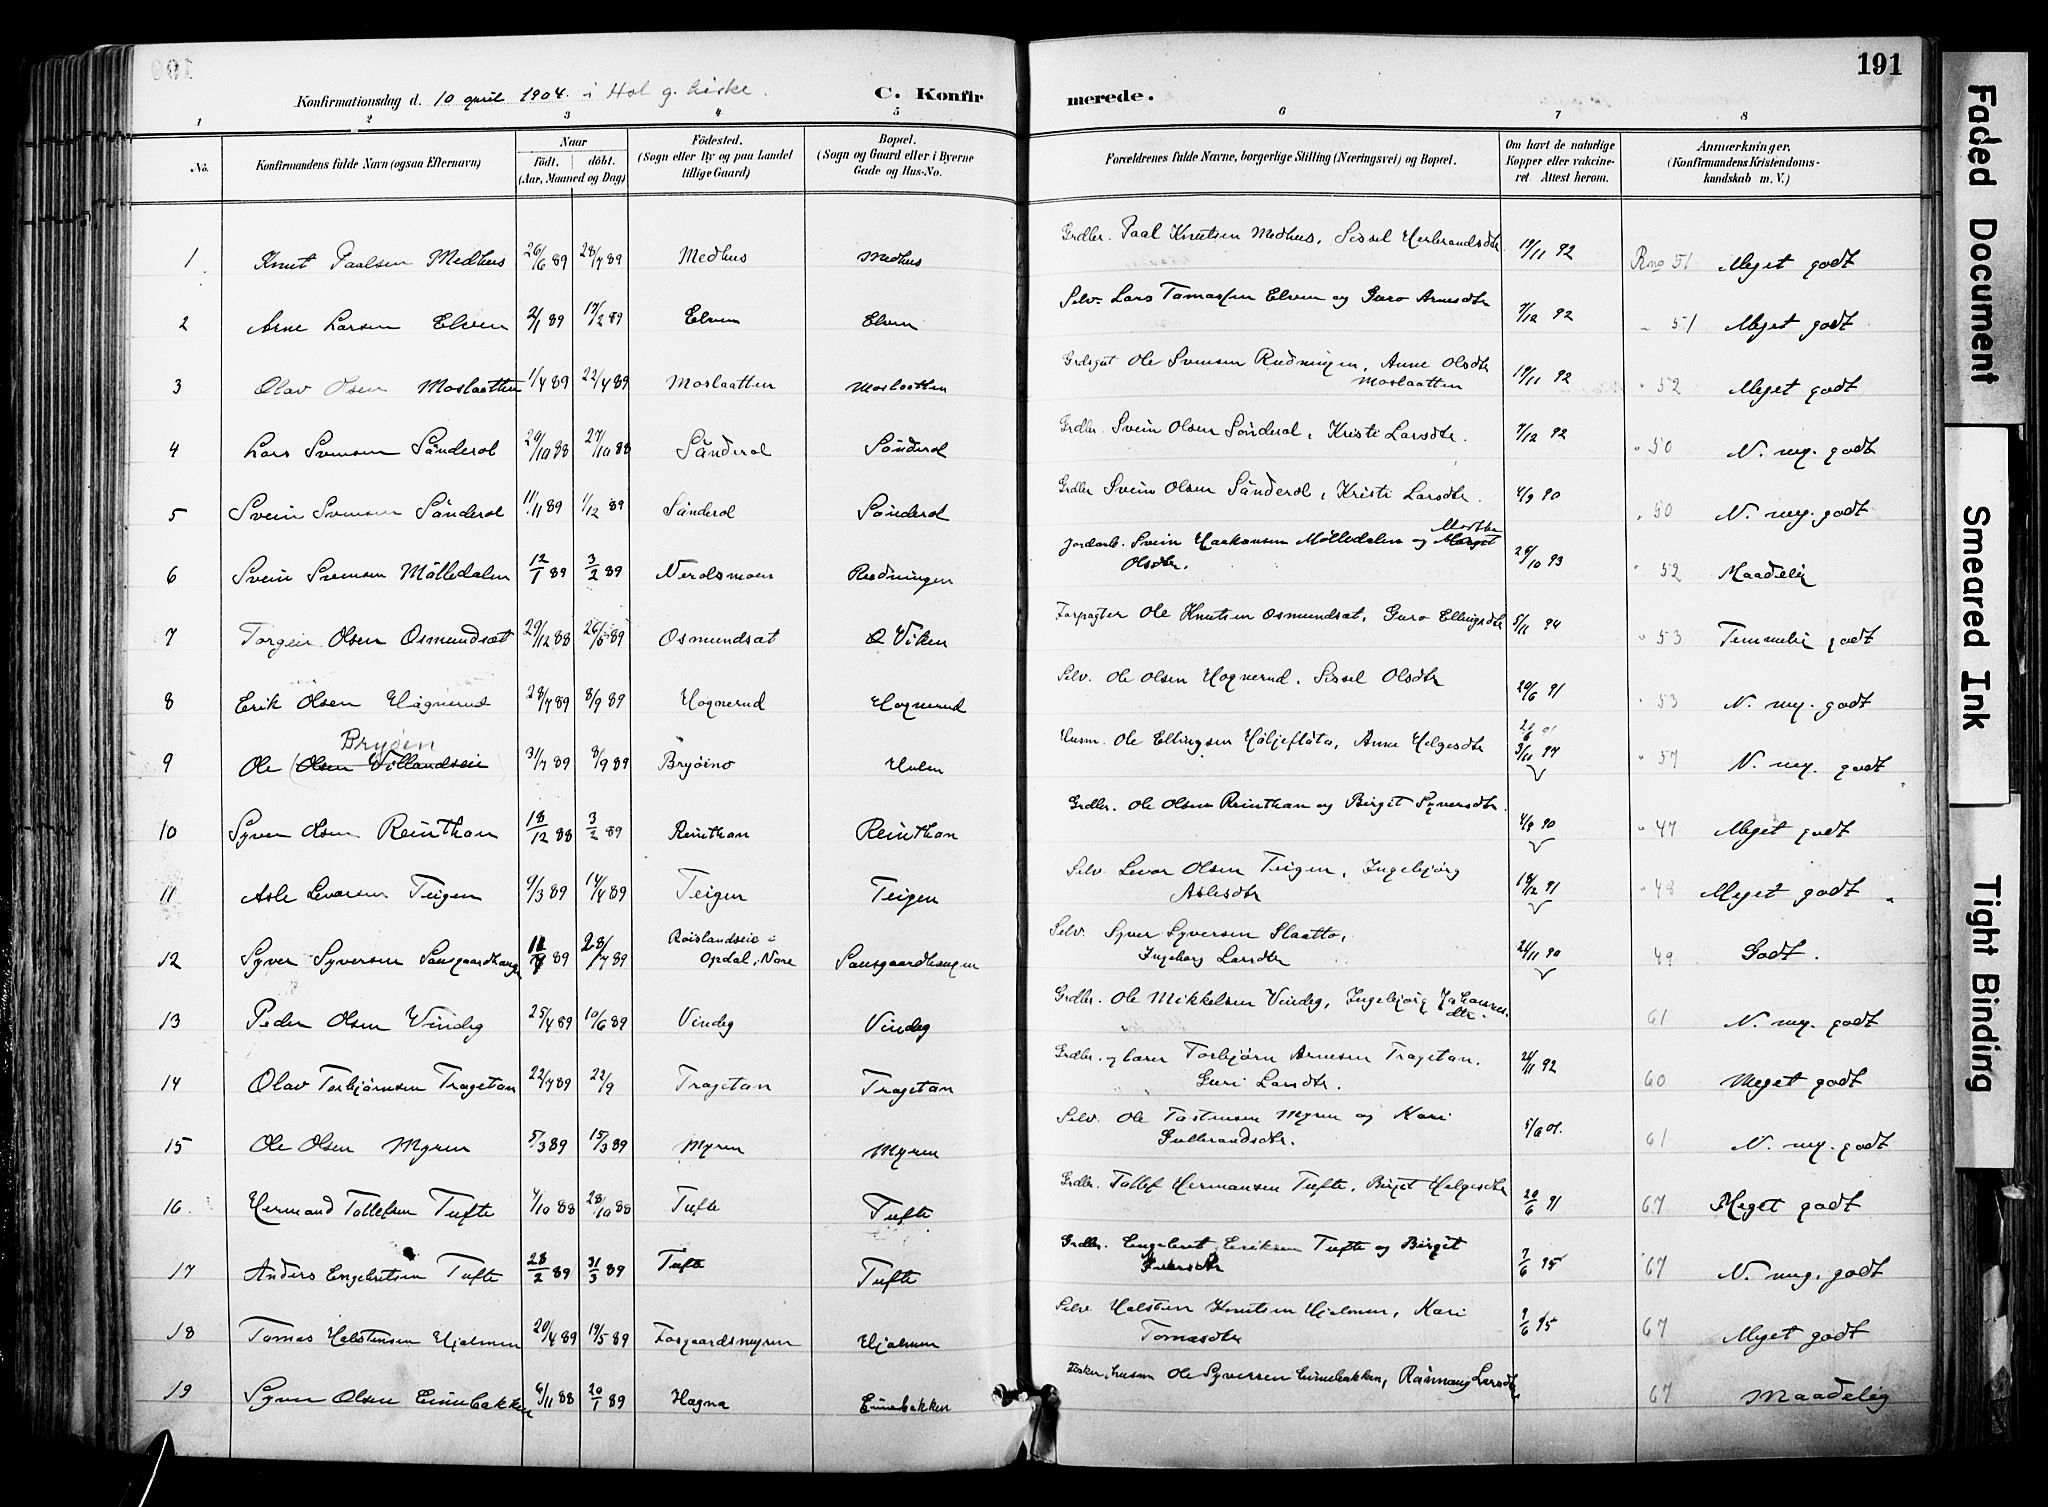 191
Konfirmationsdag d. 10 april 1904. i Hol g. kirke. C. Konfirmerede.
1 2 3 4 5 6 7 8
No. Konfirmandens fulde Navn (ogsaa Efternavn) Naar födt. döbt. (Aar, Maaned og Dag) Födested. (Sogn eller By og paa Landet tillige Gaard) Bopæl. (Sogn og Gaard eller i Byerne Gade og Hus-No. Forældrenes fulde Navne, borgerlige Stilling (Næringsvei) og Bopæl. Om havt de naturlige Kopper eller vakcineret Attest herom. Anmærkninger. (Konfirmandens Kristendomskundskab m. V.)
1 Knut Paalsen Medhus 26/6 89 28/7 89 Medhus Medhus Grdbr. Paal Knutsen Medhus, Sissel Herbrandsdtr 19/11 92 Rno 51 Meget godt
2 Arne Larsen Elven 2/1 89 17/2 89 Elven Elven Selv. Lars Tamassen Elven og Guro Arnesdtr 7/12 92 " 51 Meget godt
3 Olav Olsen Moslaatten 1/4 89 22/4 89 Moslaatten Moslaatten Grdsgut Ole Svensen Rudningen, Anne Olsdtr Moslaatten 19/11 92 " 52 Meget godt
4 Lars Svensen Sönderol 29/10 88 27/10 88 Sönderol Sönderol Grdbr. Svein Olsen Sönderol, Kristi Larsdtr. 7/12 92 " 50 N. my. godt
5 Svein Svensen Sönderol 11/11 89 1/12 89 Sönderol Sönderol Grdbr Svein Olsen Sönderol, Kristi Larsdtr. 4/9 90 " 50 N. my. godt
6 Svein Svensen Mölledalen 12/1 89 3/2 89 Nerdsmoen Rudningen Jordarb. Svein Haakonsen Mölledalen og Margit Olsdtr. 29/10 93 " 52 Maadelig
7 Torgeir Olsen Osmundsæt 29/12 88 26/5 89 Osmundsat Viken Forpagter Ole Knutsen Osmundsat, Guro Ellingsdtr 5/11 94 " 53 Temmelig godt
8 Erik Olsen Högnerud 28/7 89 8/9 89 Hognerud Hognerud Selv. Ole Olsen Hognerud, Sissel Olsdtr 29/6 91 " 53 N. my. godt
9 Ole (Olsen Villandseie) Bryöen 31/7 89 8/9 89 Bryöeno Hulen Husm. Ole Ellingsen Höljeflöto, Anne Helgesdtr 3/11 97 " 57 N. my. godt
10 Syver Olsen Reinthan 18/12 88 3/2 89 Reinthan Reinthan Grdbr. Ole Olsen Reinthan og Birgit Syversdtr. 4/9 90 " 47 Meget godt
11 Asle Levorsen Teigen 9/3 89 14/4 89 Teigen Teigen Selv. Levor Olsen Teigen, Ingebjörg Aslesdtr 19/12 91 " 48 Meget godt
12 Syver Syversen Sansgaardhaugen 89 28/7 89 Röislandseie i Opdal, Nore Sansgaardhaugen Selv. Syver Syversen Slaatto, Ingeborg Larsdtr 24/11 90 49 Godt.
13 Peder Olsen Vindeg 25/4 89 10/6 89 Vindeg Vindeg Grdbr. Ole Mikkelsen Vindeg, Ingebjörg Johannesdtr. 61 N. my. godt
14 Olav Torbjørnsen Tragetan 22/7 89 22/9 Tragetan Tragetan Grdbr. og lærer Torbjørn Arnesen Tragetan. Guri Larsdtr. 24/11 92 60 Meget godt
15 Ole Olsen Myren 5/3 89 15/3 89 Myren Myren Selv. Ole Tostensen Myren og Kari Gulbrandsdtr. 5/6 01. 61 N. my. godt
16 Hermand Tollefsen Tufte 4/10 88 28/10 88 Tufte Tufte Grdbr. Tollef Hermansen Tufte, Birgit Helgesdtr 20/6 91 67 Meget godt
17 Anders Engebretsen Tufte 28/2 89 31/3 89 Tufte Tufte Grdbr. Engebret Eriksen Tufte og Birgit 7/6 95 67 N. my. godt
18 Tomas Halstensen Hjelmen 20/4 89 19/5 89 Fosgaardsmyren Hjelmen Selv. Halsten Knutsen Hjelmen, Kari Tomasdtr 9/6 95 67 Meget godt
19 Syver Olsen Einebakken 6/11 88 20/1 89 Hagna Einebakken husm Ole Syversen Einebakken, Rannaug Larsdtr 67 Maadelig
Faded Document
Smeared Ink
Tight Binding